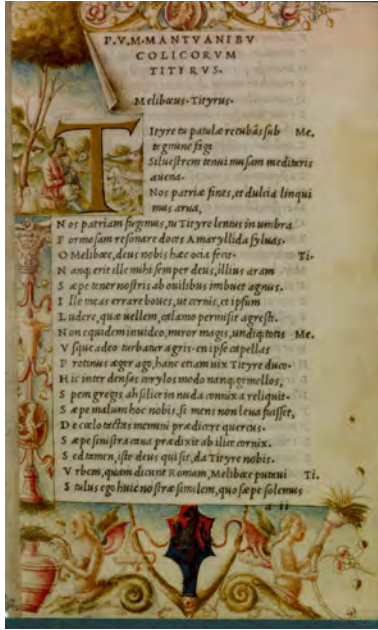 P.V.M. MANTVANI BV
COLICORVM
TITYRVS.
Melibœus. Tityrus.
TItyre tu patulæ recubãs sub Me.
tegmine fagi
Siluestrem tenui musam meditaris
auena.
Nos patriæ fines, et dulcia linqui
mus arua,
Nos patriam fugimus, tu Tityre lentus in umbra
Formosam resonare doces Amaryllida syluas.
O Melibœe, deus nobis hæc ocia fecit. Ti.
Nanq; erit ille mihi semper deus, illius aram
Sæpe tener nostris ab ouilibus imbuet agnus.
Ille meas errare boues, ut cernis, et ipsum
Ludere, quæ uellem, calamo permisit agresti.
Non equidem inuideo, miror magis, undiq; totis Me.
Vsque adeo turbatur agris. en ipse capellas
Protinus æger ago, hanc etiam uix Tityre duco.
Hic inter densas corylos modo nanq; gemellos,
Spem gregis ah silice in nuda connixa reliquit.
Sæpe malum hoc nobis, si mens non leua fuisset,
De cœlo tactas memini prædicere quercus.
Sæpe sinistra caua prædixit ab ilice cornix.
Sed tamen, iste deus qui sit, da Tityre nobis.
Vrbem, quam dicunt Romam, Melibœe putaui Ti.
Stultus ego huic nostræ similem, quo sæpe solemus
a ii